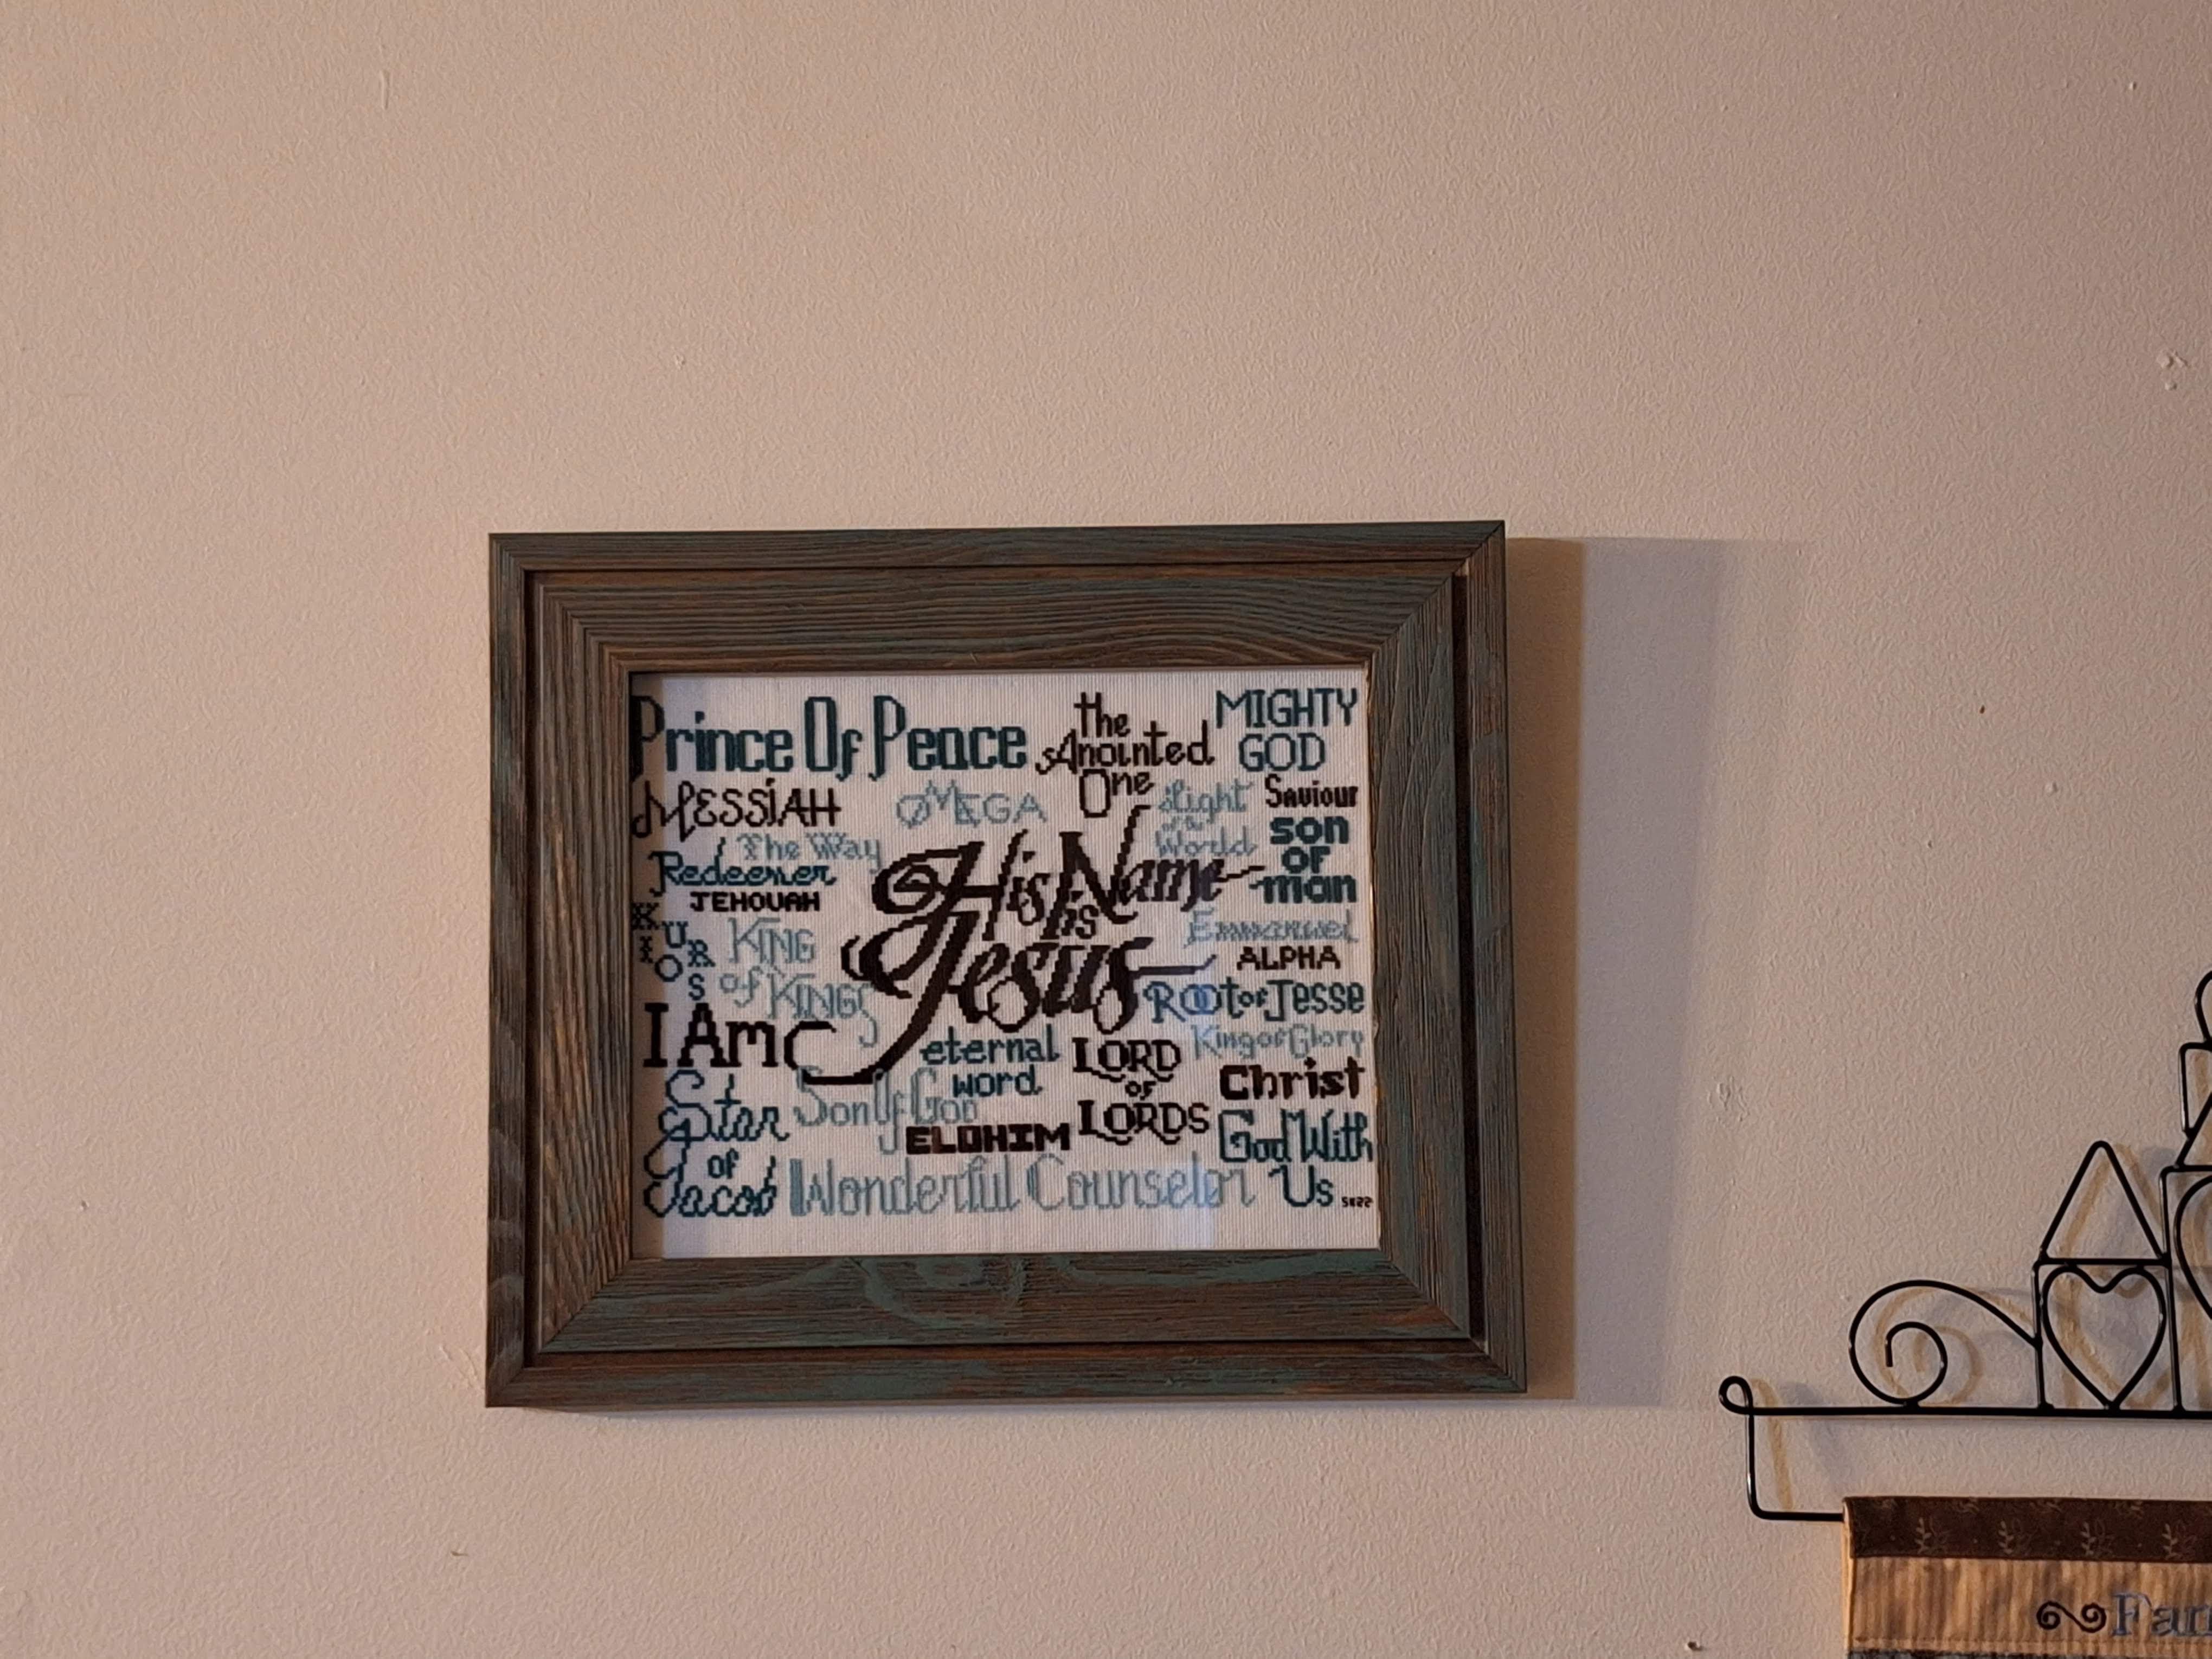 Prince Of Peace
the
Anointed
One
MIGHTY
GOD
MESSiAH
OMEGA
Light
of the
World
Saviour
son
of
man
The Way
Redeemer
JEHOVAH
His Name
is
Jesus
KURIOS
KING
of KINGS
Emmanuel
ALPHA
Root of Jesse
I Am
eternal
word
LORD
of
LORDS
King of Glory
Christ
Star
of
Jacob
Son Of God
ELOHIM
God With
Us
Wonderful Counselor